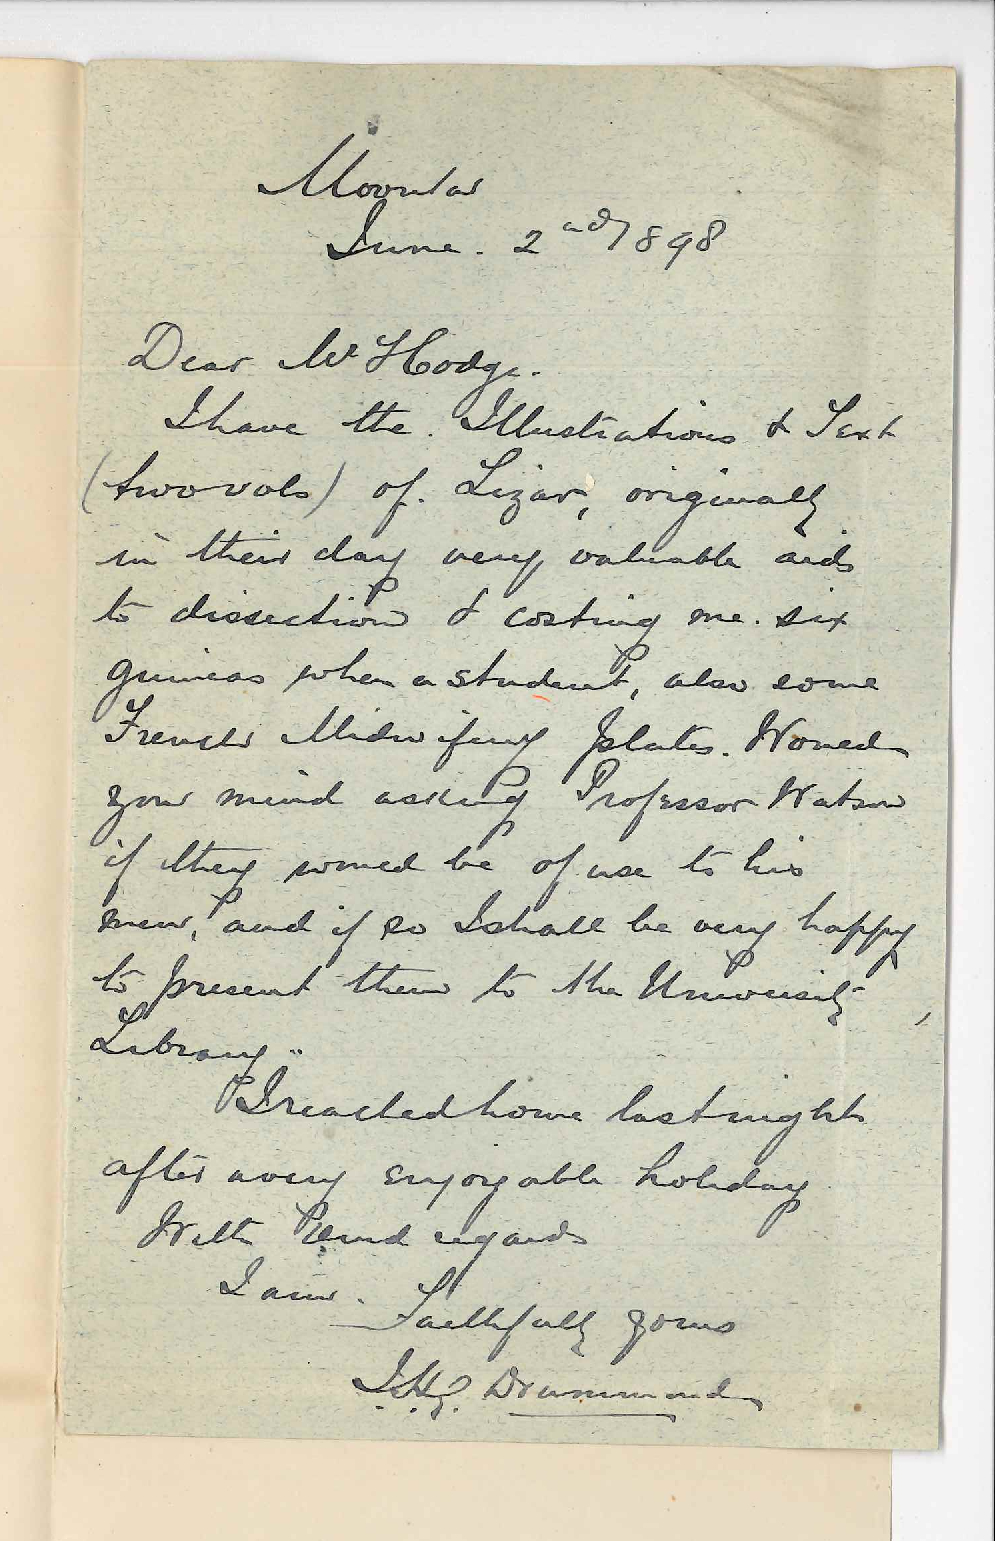 Moonta
June. 2nd 1898
Dear Mr Hodge.
I have the. Illustrations & Text
(two vols) of. Lizar, originally
in their day very valuable aids
to dissection & costing me. six
guineas when a student, also some
French Midwifery plates. Would
you mind asking Professor Watson
if they would be of use to his
men, and if so I shall be very happy
to present them to the University
Library..
I reached home last night
after a very enjoyable holiday
With kind regards
I am.
Faithfully yours
Drummond